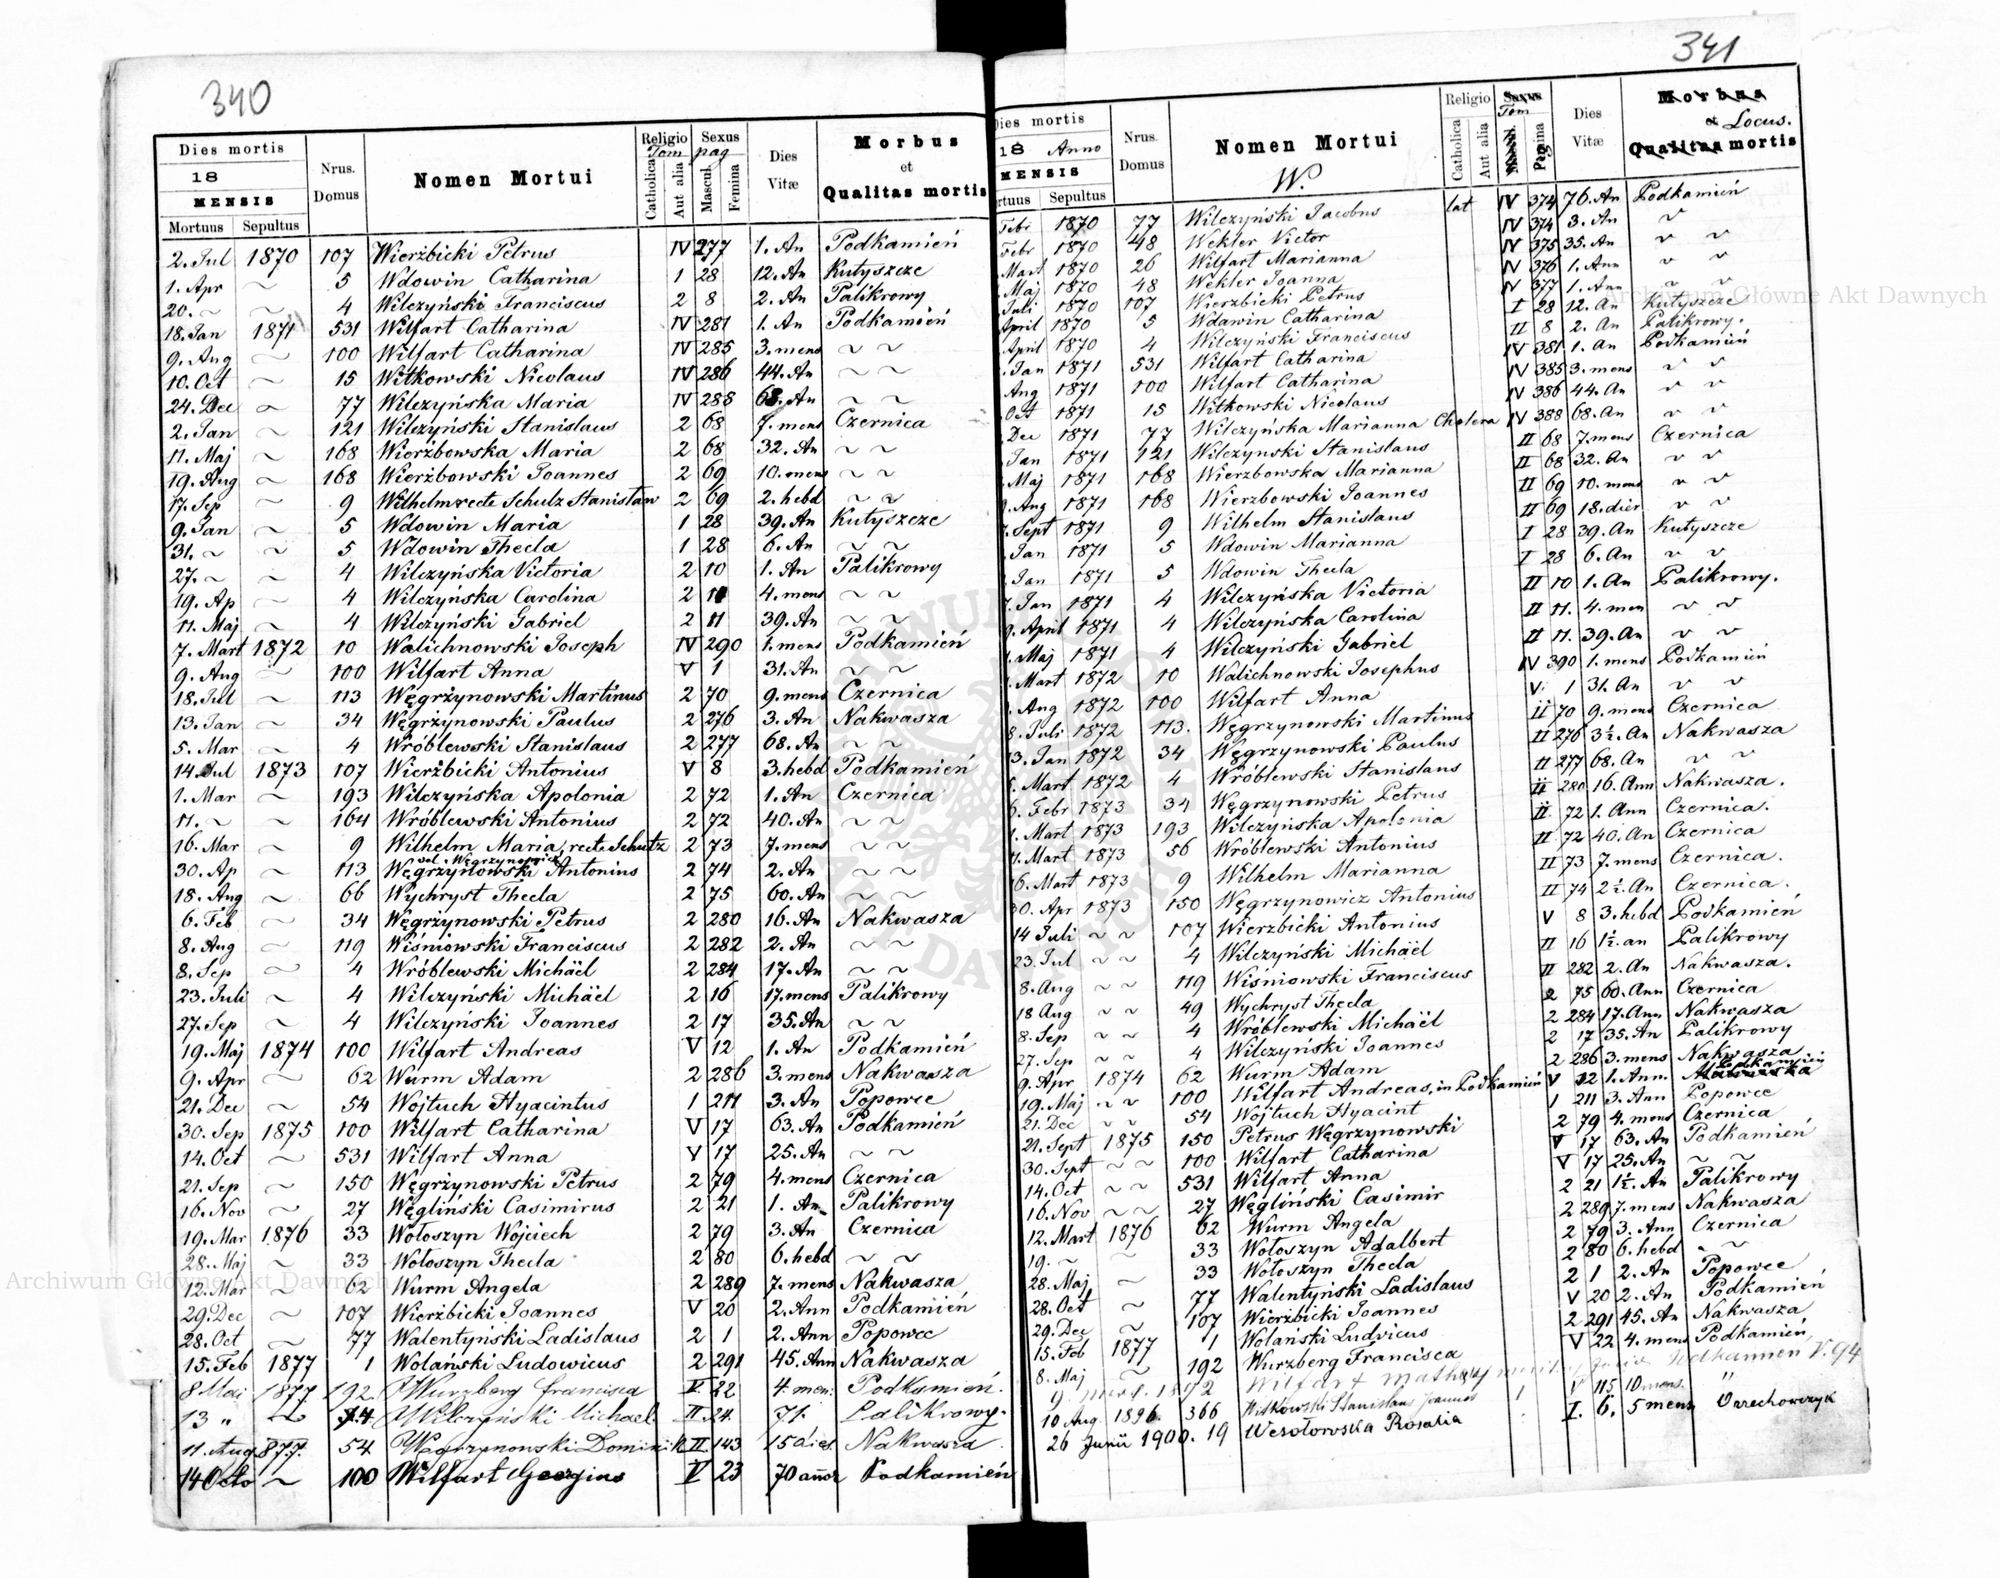 340
Dies mortis
18
MENSIS
Mortuus Sepultus
Nrus. Domus
Nomen Mortui
Religio
Tom
Catholica
Aut alia
Sexus
pag
Mascul.
Femina
Dies Vitæ
Morbus
et
Qualitas mortis
2. Jul 1870 107 Wierzbicki Petrus IV 277 1. An Podkamień
1. Apr ~ 5 Wdowin Catharina 1 28 12. An Kutyszcze
20. ~ ~ 4 Wilczyński Franciscus 2 8 2. An Palikrowy
18. Jan 1871 531 Wilfart Catharina IV 281 1. An Podkamień
9. Aug ~ 100 Wilfart Catharina IV 285 3. mens ~ ~
10. Oct ~ 15 Witkowski Nicolaus IV 286 44. An ~ ~
24. Dec ~ 77 Wilczyńska Maria IV 288 68. An ~ ~
2. Jan ~ 121 Wilczyński Stanislaus 2 68 7. mens Czernica
11. Maj ~ 168 Wierzbowska Maria 2 68 32. An ~ ~
19. Aug ~ 168 Wierzbowski Joannes 2 69 10. mens ~ ~
17. Sep ~ 9 Wilhelm recte Schulz Stanisław 2 69 2. hebd ~ ~
9. Jan ~ 5 Wdowin Maria 1 28 39. An Kutyszcze
31. ~ ~ 5 Wdowin Thecla 1 28 6. An ~ ~
27. ~ ~ 4 Wilczyńska Victoria 2 10 1. An Palikrowy
19. Ap ~ 4 Wilczyńska Carolina 2 11 4. mens ~ ~
11. Maj ~ 4 Wilczyński Gabriel 2 11 39. An ~ ~
7. Mart 1872 10 Walichnowski Joseph IV 290 1. mens Podkamień
9. Aug ~ 100 Wilfart Anna V 1 31. An ~ ~
18. Jul ~ 113 Węgrzynowski Martinus 2 70 9. mens Czernica
13. Jan ~ 34 Węgrzynowski Paulus 2 276 3. An Nakwasza
5. Mar ~ 4 Wróblewski Stanislaus 2 277 68. An ~ ~
14. Jul 1873 107 Wierzbicki Antonius V 8 3. hebd Podkamień
1. Mar ~ 193 Wilczyńska Apolonia 2 72 1. An Czernica
11. ~ ~ 164 Wróblewski Antonius 2 72 40. An ~ ~
16. Mar ~ 9 Wilhelm Maria, recte Schultz 2 73 7. mens ~ ~
vel Węgrzynowicz
30. Ap ~ 113 Węgrzynowski Antonius 2 74 2. An ~ ~
18. Aug ~ 66 Wychryst Thecla 2 75 60. An ~ ~
6. Feb ~ 34 Węgrzynowski Petrus 2 280 16. An Nakwasza
8. Aug ~ 119 Wiśniowski Franciscus 2 282 2. An ~ ~
8. Sep ~ 4 Wróblewski Michäel 2 284 17. An ~ ~
23. Juli ~ 4 Wilczyński Michäel 2 16 17. mens Palikrowy
27. Sep ~ 4 Wilczyński Joannes 2 17 35. An ~ ~
19. Maj 1874 100 Wilfart Andreas V 12 1. An Podkamień
9. Apr ~ 62 Wurm Adam 2 286 3. mens Nakwasza
21. Dec ~ 54 Wojtuch Hyacintus 1 211 3. An Popowce
30. Sep 1875 100 Wilfart Catharina V 17 63. An Podkamień
14. Oct ~ 531 Wilfart Anna V 17 25. An ~ ~
21. Sep ~ 150 Węgrzynowski Petrus 2 79 4. mens Czernica
16. Nov ~ 27 Węgliński Casimirus 2 21 1. An Palikrowy
19. Mar 1876 33 Wołoszyn Wojciech 2 79 3. An Czernica
28. Maj ~ 33 Wołoszyn Thecla 2 80 6. hebd ~ ~
12. Mar ~ 62 Wurm Angela 2 289 7. mens Nakwasza
29. Dec ~ 107 Wierzbicki Joannes V 20 2. Ann Podkamień
28. Oct ~ 77 Walentyński Ladislaus 2 1 2. Ann Popowce
15. Feb 1877 1 Wolański Ludowicus 2 291 45. Ann Nakwasza
8 Mai 1877 192 Wurzberg Francisca V 22 4. men: Podkamień.
13 " ~ 14 Wilczyński Michael II 24 71. Palikrowy.
11. Aug 877. 54 Węgrzynowski Dominik II 143 15 dies. Nakwasza
14 Octo ~ 100 Wilfart Georgius V 23 70 annor Podkamień
341
Dies mortis
18 Anno
MENSIS
rtuus Sepultus
Nrus. Domus
Nomen Mortui
W.
Religio
Catholica
Aut alia
Sexus
Tom
Mascul.
Pagina
Dies Vitæ
Morbus
et Locus.
Qualitas mortis
Febr 1870 77 Wilczyński Jacobus lat IV 374 76. An Podkamień
Febr 1870 48 Wekler Victor IV 374 3. An v
Mart 1870 26 Wilfart Marianna IV 375 35. An v v
Maj 1870 48 Wekler Joanna IV 376 1. Ann v v
Juli 1870 107 Wierzbicki Petrus IV 377 1. Ann v v
April 1870 5 Wdawin Catharina I 28 12. An Kutyszcze
April 1870 4 Wilczyński Franciscus II 8 2. An Palikrowy.
Jan 1871 531 Wilfart Catharina IV 381 1. An Podkamień
Aug 1871 100 Wilfart Catharina IV 385 3. mens v v
Oct 1871 15 Witkowski Nicolaus IV 386 44. An v v
Dec 1871 77 Wilczyńska Marianna Cholera IV 388 68. An v v
Jan 1871 121 Wilczynski Stanislaus II 68 7. mens Czernica
Maj 1871 168 Wierzbowska Marianna II 68 32. An v v
Aug 1871 168 Wierzbowski Joannes II 69 10. mens v v
7. Sept 1871 9 Wilhelm Stanislaus II 69 18. dier v v
Jan 1871 5 Wdowin Marianna I 28 39. An Kutyszcze
Jan 1871 5 Wdowin Thecla I 28 6. An v v
7. Jan 1871 4 Wilczyńska Victoria II 10 1. An Palikrowy.
9. April 1871 4 Wilczyńska Carolina II 11. 4. men v v
1. Maj 1871 4 Wilczyński Gabriel II 11. 39. An v v
Mart 1872 10 Walichnowski Josephus IV 390 1. mens Podkamień
Aug 1872 100 Wilfart Anna V. 1 31. An v v
8. Juli 1872 113. Węgrzynowski Martinus II 70 9. mens Czernica
13. Jan 1872 34 Węgrzynowski Paulus II 276 3½. An Nakwasza
5. Mart 1872 4 Wróblewski Stanislaus II 277 68. An v v
6. Febr 1873 34 Węgrzynowski Petrus II 280 16. Ann Nakwasza.
1. Mart 1873 193 Wilczyńska Apolonia II 72 1. Ann Czernica.
11. Mart 1873 56 Wróblewski Antonius II 72 40. An Czernica
16. Mart 1873 9 Wilhelm Marianna II 73 7. mens Czernica.
30. Apr 1873 150 Węgrzynowicz Antonius II 74 2½. An Czernica.
14 Juli ~ ~ 107 Wierzbicki Antonius V 8 3. hebd Podkamień
23. Jul ~ ~ 4 Wilczyński Michäel II 16 1½. an Palikrowy
8. Aug ~ ~ 119 Wiśniowski Franciscus II 282 2. An Nakwasza.
18 Aug ~ ~ 49 Wychryst Thecla 2 75 60. Ann Czernica
8. Sep ~ ~ 4 Wróblewski Michäël 2 284 17. Ann Nakwasza
27. Sep ~ ~ 4 Wilczyński Joannes 2 17 35. An Palikrowy
9. Apr 1874 62 Wurm Adam 2 286 3. mens Nakwasza
19. Maj ~ ~ 100 Wilfart Andreas, in Podkamień V 12 1. Ann. Podkamień
21. Dec ~ ~ 54 Wojtuch Hyacint 1 211 3. Ann Popowce
21. Sept 1875 150 Petrus Węgrzynowski 2 79 4. mens Czernica
30. Sept ~ ~ 100 Wilfart Catharina V 17 63. An Podkamień
14. Oct ~ ~ 531 Wilfart Anna V 17 25. An ~ ~
16. Nov ~ ~ 27 Węgliński Casimir 2 21 1½. An Palikrowy
12. Mart 1876 62 Wurm Angela 2 289 7. mens Nakwasza
19. ~ ~ 33 Wołoszyn Adalbert 2 79 3. Ann Czernica
28. Maj ~ 33 Wołoszyn Thecla 2 80 6. hebd ~ ~
28. Oct ~ 77 Walentyński Ladislaus 2 1 2. An Popowce
29. Dec ~ 107 Wierzbicki Joannes V 20 2. An Podkamień
15. Feb 1877 1 Wolański Ludvicus 2 291 45. An Nakwasza
8. Maj ~ 192 Wurzberg Francisca V 22 4. mens Podkamień,
9 Wilfart Podkamień V. 94
10 Aug. 1896. 366 Witkowski Stanislaus Joannes 1 V 115 10 mens. "
26 Junii 1900. 19 Wesołowska Rosalia I. 6. 5 mens Orzechowczyk
Archiwum Główne Akt Dawnych
Archiwum Główne Akt Dawnych